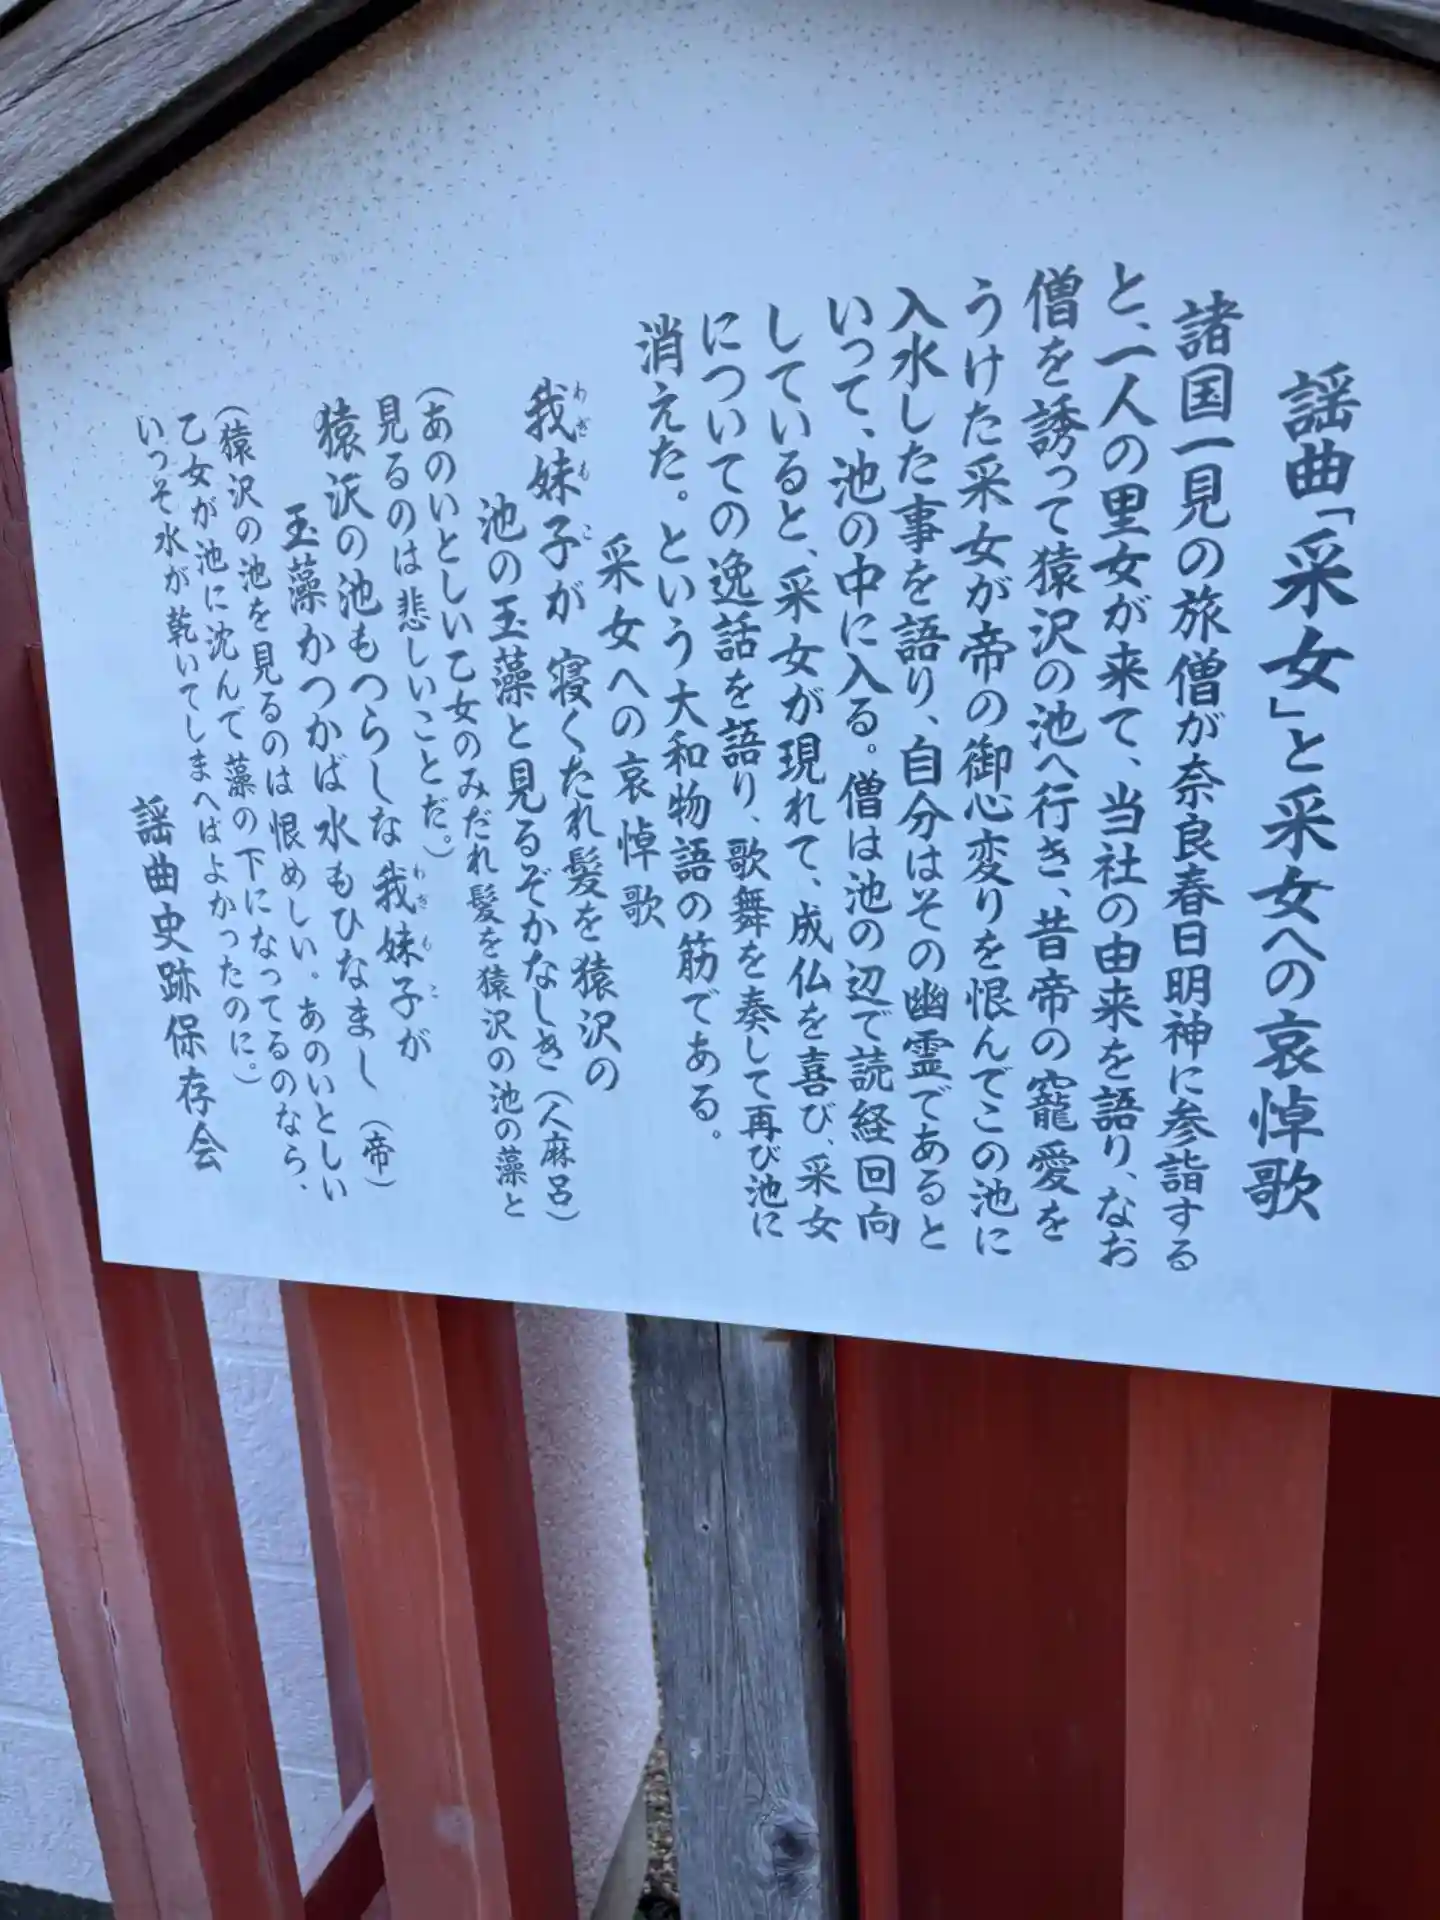 謡曲「采女」と采女への哀悼歌
諸国一見の旅僧が奈良春日明神に参詣する
と、一人の里女が来て、当社の由来を語り、なお
僧を誘って猿沢の池へ行き、昔帝の寵愛を
うけた采女が帝の御心変りを恨んでこの池に
入水した事を語り、自分はその幽霊であると
いって、池の中に入る。僧は池の辺で読経回向
していると、采女が現れて、成仏を喜び、采女
についての逸話を語り、歌舞を奏して再び池に
消えた。という大和物語の筋である。
采女への哀悼歌
我妹子が 寝くたれ髪を猿沢の
わぎもこ
池の玉藻と見るぞかなしき（人麻呂）
（あのいとしい乙女のみだれ髪を猿沢の池の藻と
見るのは悲しいことだ。）
猿沢の池もつらしな 我妹子が
わぎもこ
玉藻かつかば 水もひなまし（帝）
（猿沢の池を見るのは恨めしい。あのいとしい
乙女が池に沈んで藻の下になってるのなら、
いっそ水が乾いてしまへばよかったのに。）
謡曲史跡保存会